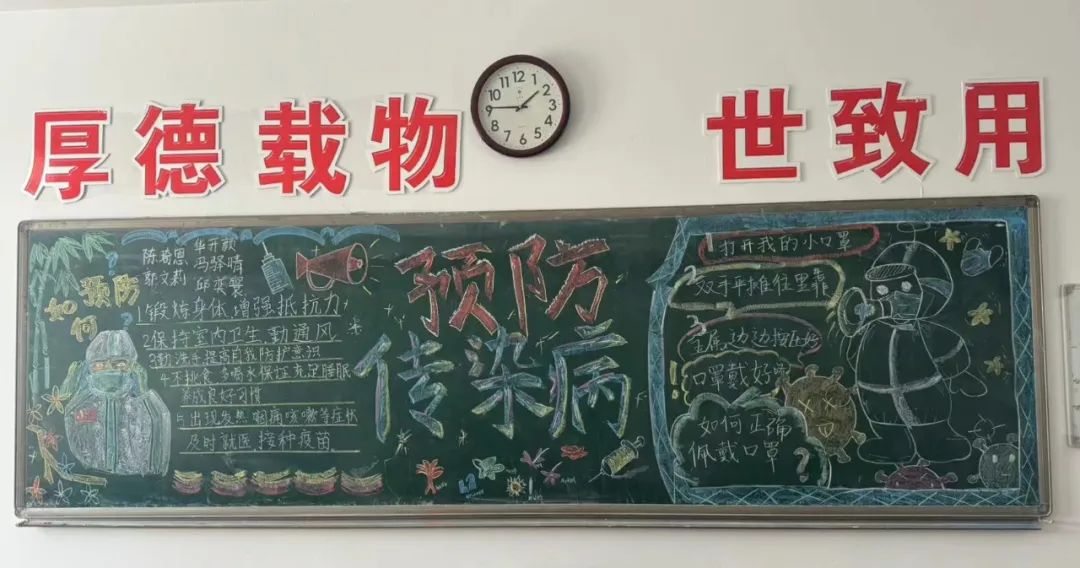 厚德载物
世致用
12
1
2
3
4
5
6
7
8
9
10
11
华开颜
冯驿晴
郭文莉
如何
预防
?
1锻炼身体,增强抵抗力
2保持室内卫生,勤通风
3勤洗手提高自我防护意识
4不挑食 多喝水保证充足睡眠
养成良好习惯
5出现发热 咽痛咳嗽等症状
及时就医 接种疫苗
预防
传染病
打开我的小口罩
双手平摊往里靠
口罩戴好
如何正确
佩戴口罩
?